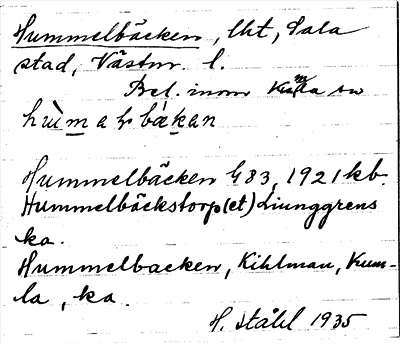 Hummelbäcken, lht, Sala
stad, Västm. l.
Bel. inom Kumla sn
hùmalbä́kan
Hummelbäcken G83, 1921 kb.
Hummelbäckstorp(et) Ljunggrens
ka.
Hummelbacken, Kihlman, Kum-
la, ka.
H. Ståhl 1935